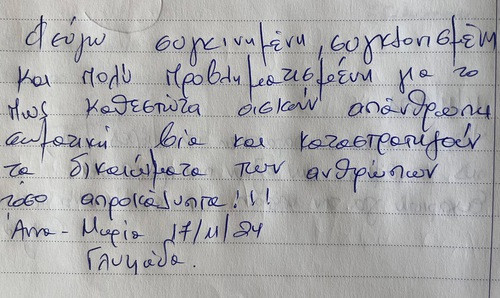 Φεύγω συγκινημένη, συγκλονισμένη
και πολύ προβληματισμένη για το
πως καθεστώτα ασκούν απάνθρωπη
σωματική βία και καταστρατηγούν
τα δικαιώματα των ανθρώπων
τόσο απροκάλυπτα!!!
Άννα - Μαρία 17/11/24
Γλυφάδα.